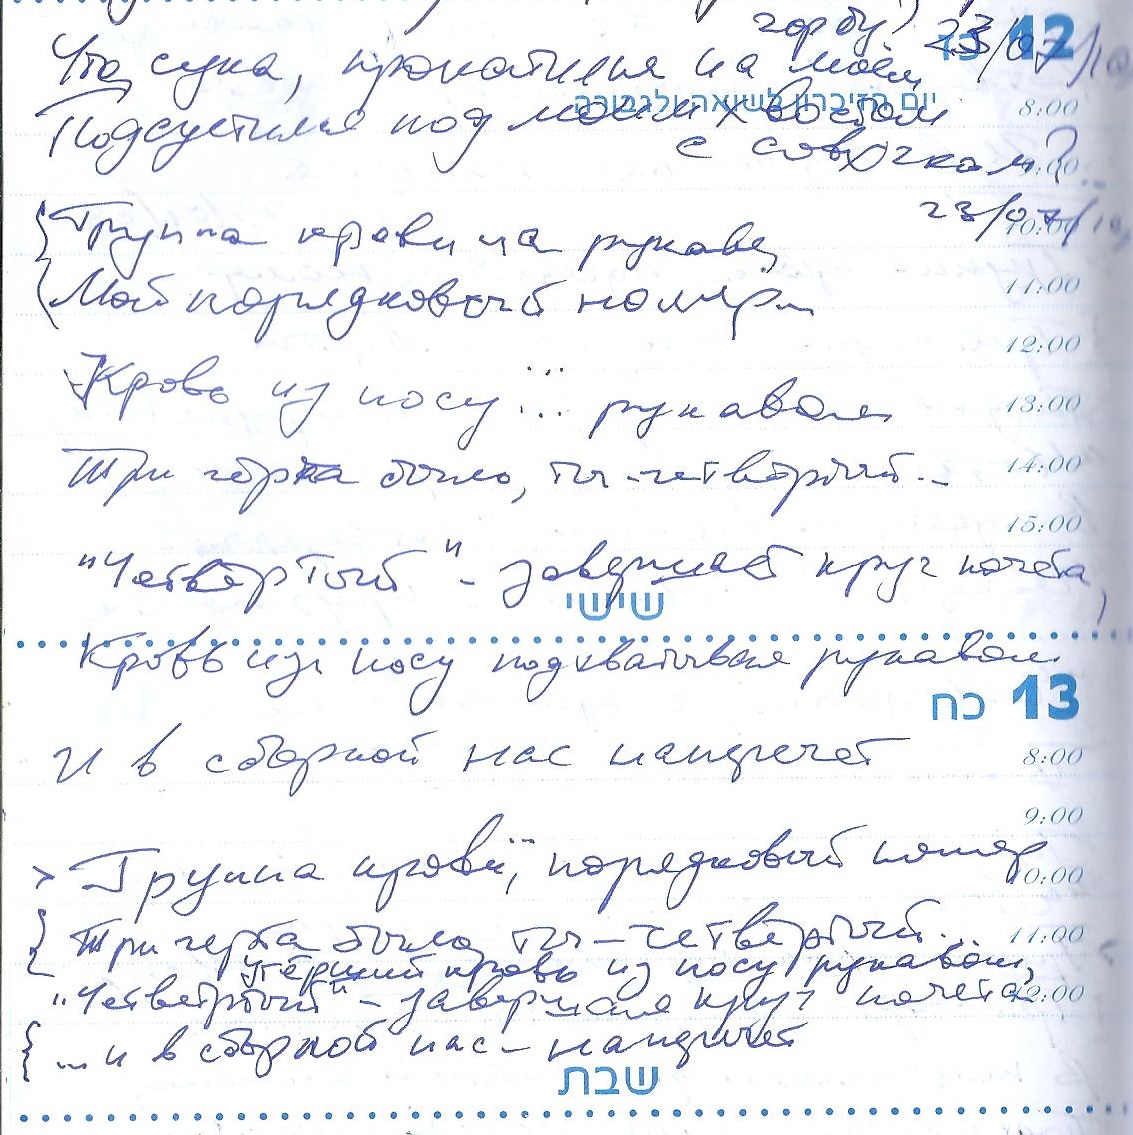 горбу? 23/07/19
12 כז
Что, сука, прокатился на моём
יום הזיכרון לשואה ולגבורה 8:00
Подсуетился под моим хвостом
с совочком?..
9:00
23/07/19
10:00
Группа крови на рукаве,
Мой порядковый номер
11:00
12:00
Кровь из носу ... рукавом
13:00
Три черта было, ты - четвёртый...
14:00
15:00
"Четвёртый" - завершает круг почёта,
שישי
Кровь из носу подхватывая рукавом
13 כח
И в сборной нас
8:00
9:00
> Группа крови, порядковый номер
10:00
Три черта было, ты - четвёртый...
11:00
утёрший кровь из носу рукавом,
"Четвёртый" - завершая круг почёта
12:00
... и в сборной нас -
שבת